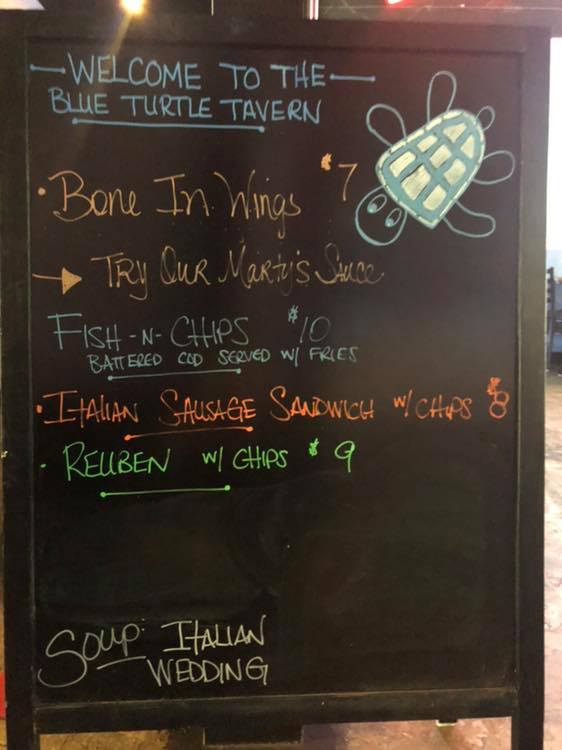 WELCOME TO THE
BLUE TURTLE TAVERN
• Bone In Wings $7
Try Our Marty's Sauce
FISH-N-CHIPS $10
BATTERED COD SERVED W/ FRIES
• ITALIAN SAUSAGE SANDWICH W/ CHIPS $8
• REUBEN W/ CHIPS $9
Soup: ITALIAN
WEDDING